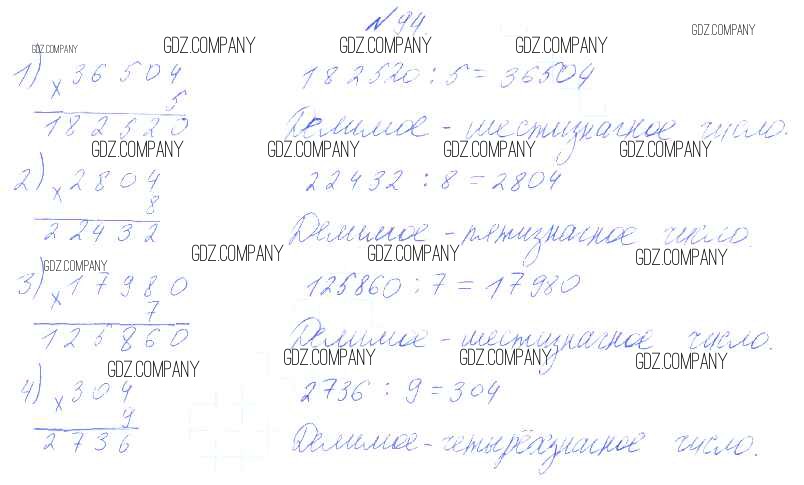 №94
GDZ.COMPANY GDZ.COMPANY GDZ.COMPANY GDZ.COMPANY GDZ.COMPANY
1) × 36504 182520 : 5 = 36504
5
182520 Делимое - шестизначное число.
GDZ.COMPANY GDZ.COMPANY GDZ.COMPANY GDZ.COMPANY
2) × 2804 22432 : 8 = 2804
8
22432 Делимое - пятизначное число.
GDZ.COMPANY GDZ.COMPANY GDZ.COMPANY GDZ.COMPANY
3) × 17980 125860 : 7 = 17980
7
125860 Делимое - шестизначное число.
GDZ.COMPANY GDZ.COMPANY GDZ.COMPANY GDZ.COMPANY
4) × 304 2736 : 9 = 304
9
2736 Делимое - четырёхзначное число.